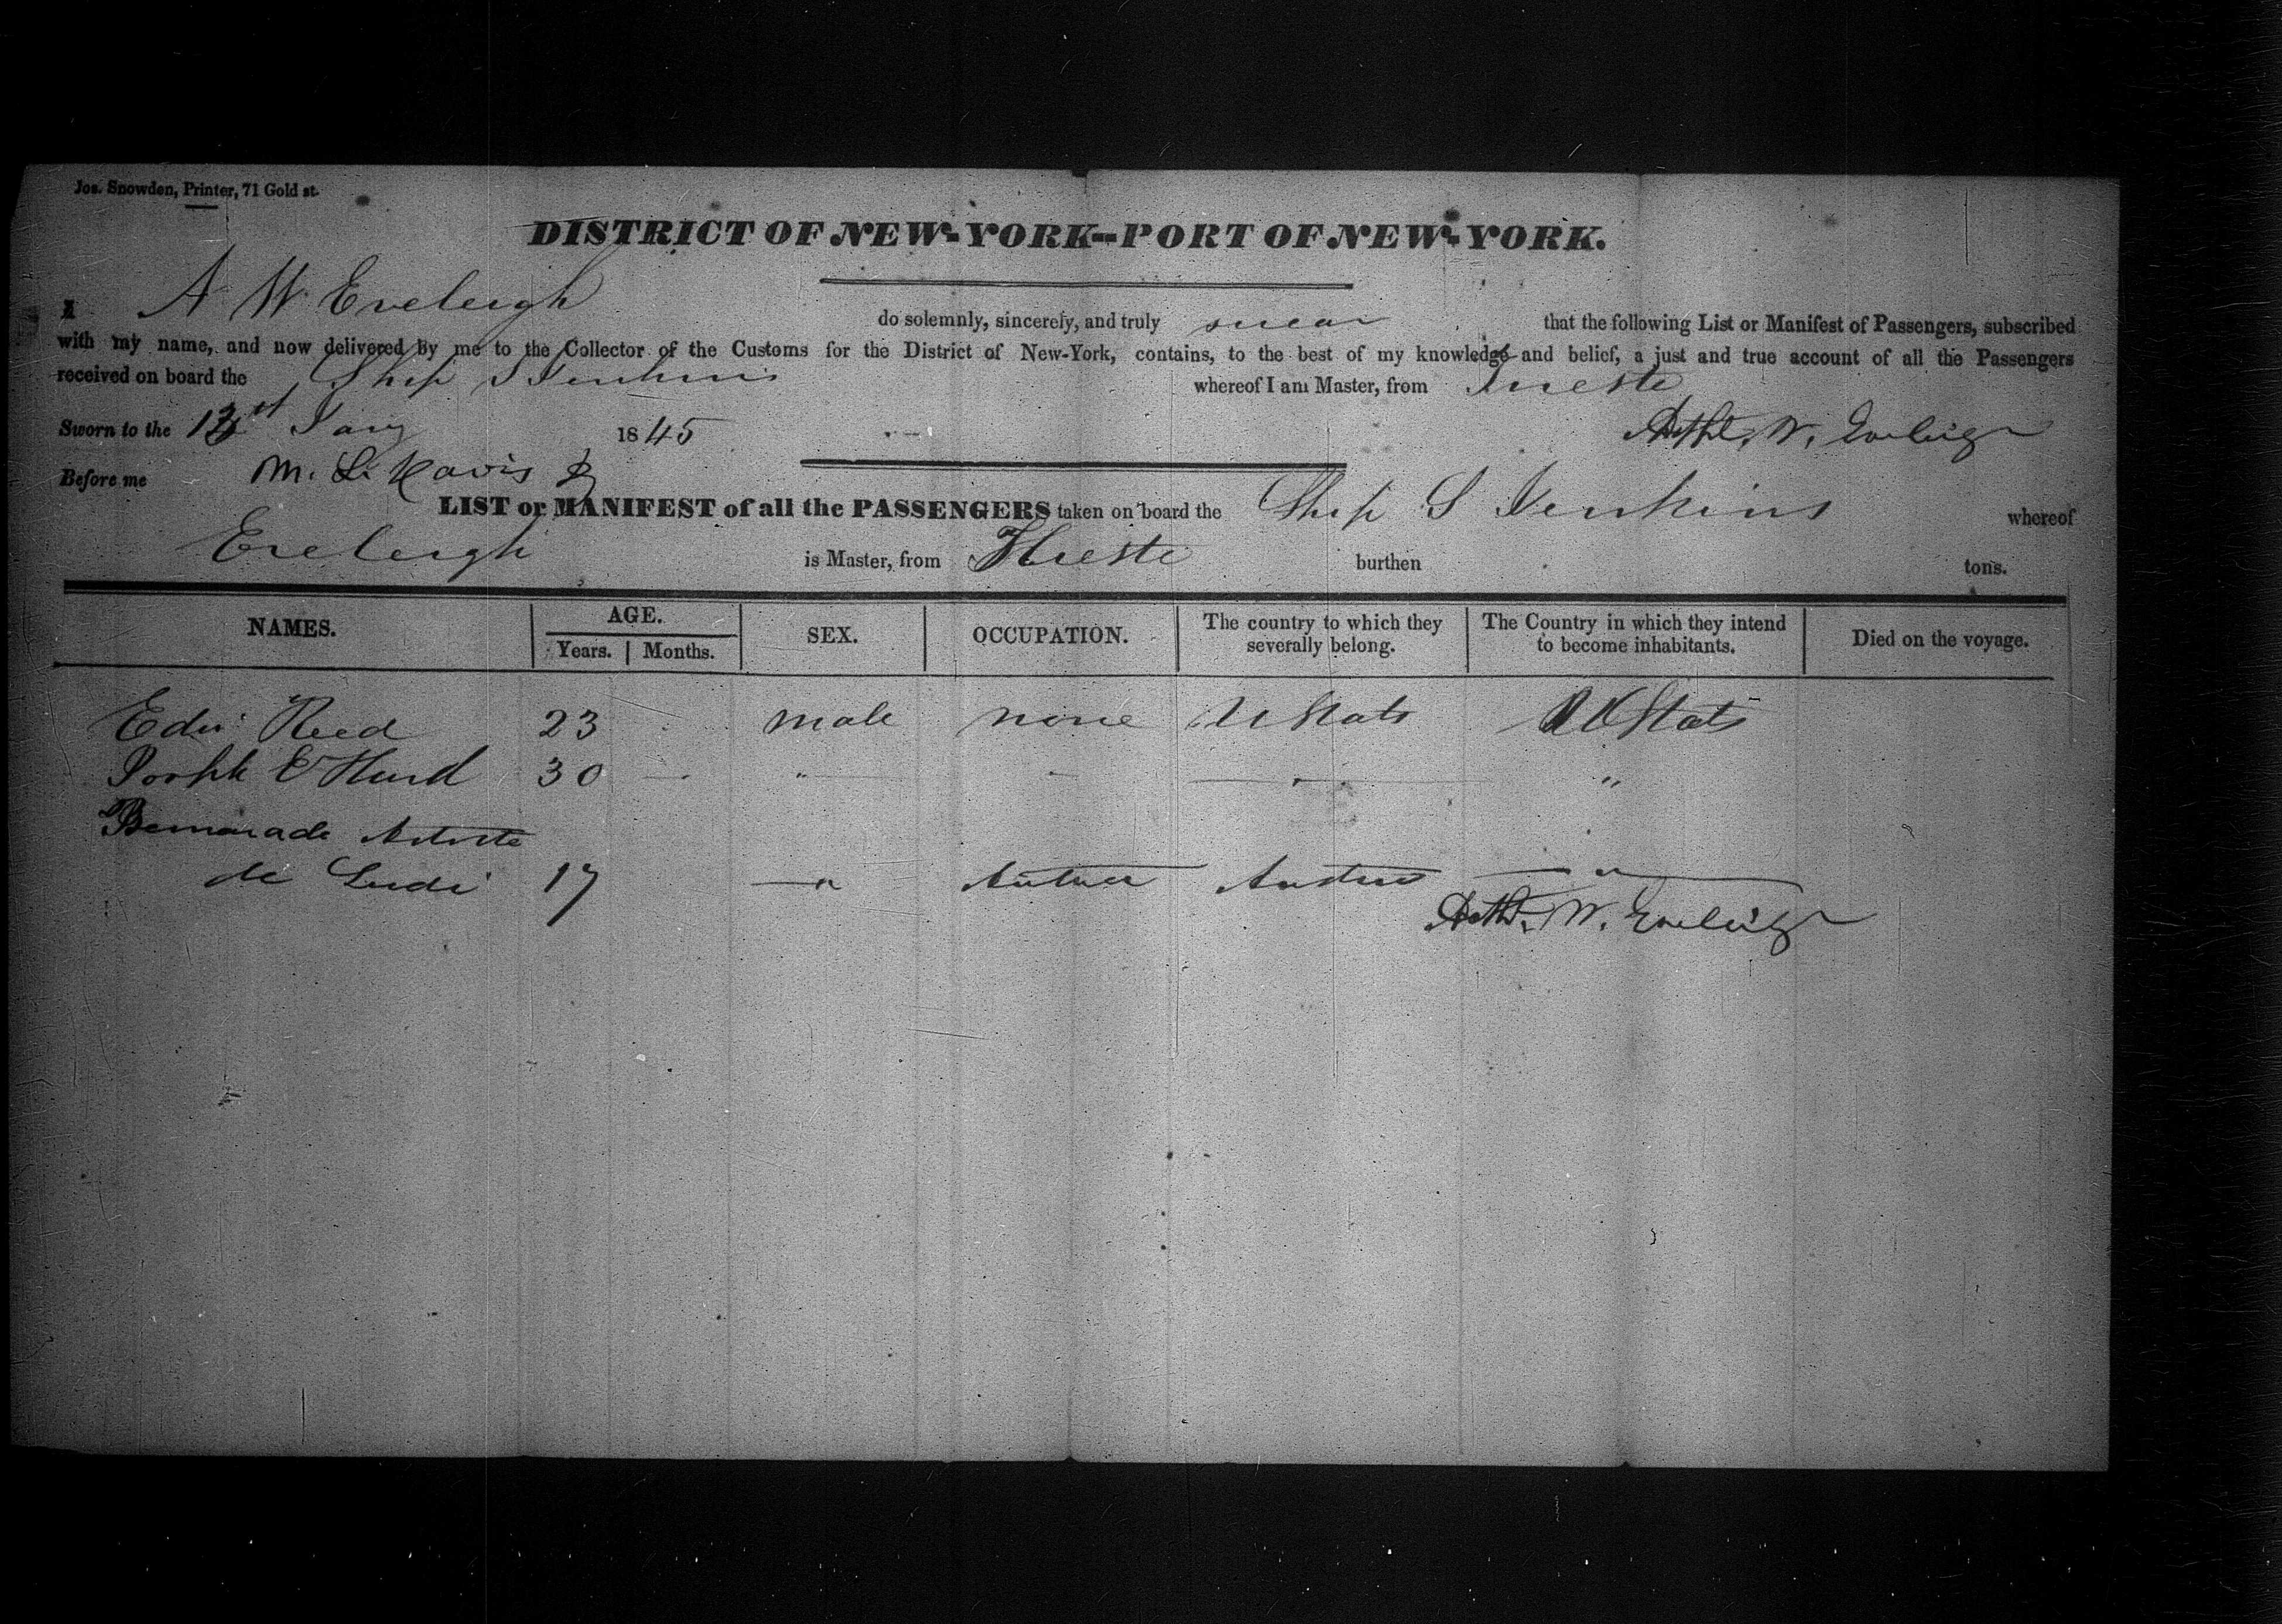 Jos. Snowden, Printer, 71 Gold st.
DISTRICT OF NEW-YORK--PORT OF NEW-YORK.
I A W Eveleigh do solemnly, sincerely, and truly swear that the following List or Manifest of Passengers, subscribed
with my name, and now delivered by me to the Collector of the Customs for the District of New-York, contains, to the best of my knowledge and belief, a just and true account of all the Passengers
received on board the Ship S Jenkins whereof I am Master, from Trieste
Sworn to the Jany 1845 W. Eveleigh
Before me M. L. Davis
LIST or MANIFEST of all the PASSENGERS taken on board the Ship S Jenkins whereof
Eveleigh is Master, from Trieste burthen tons.
NAMES. AGE. SEX. OCCUPATION. The country to which they severally belong. The Country in which they intend to become inhabitants. Died on the voyage.
Years. Months.
Edw Reed 23 male none U Stats U Stats
Joseph E Hurd 30 — " " " "
de 17 " Austria "
W. Eveleigh